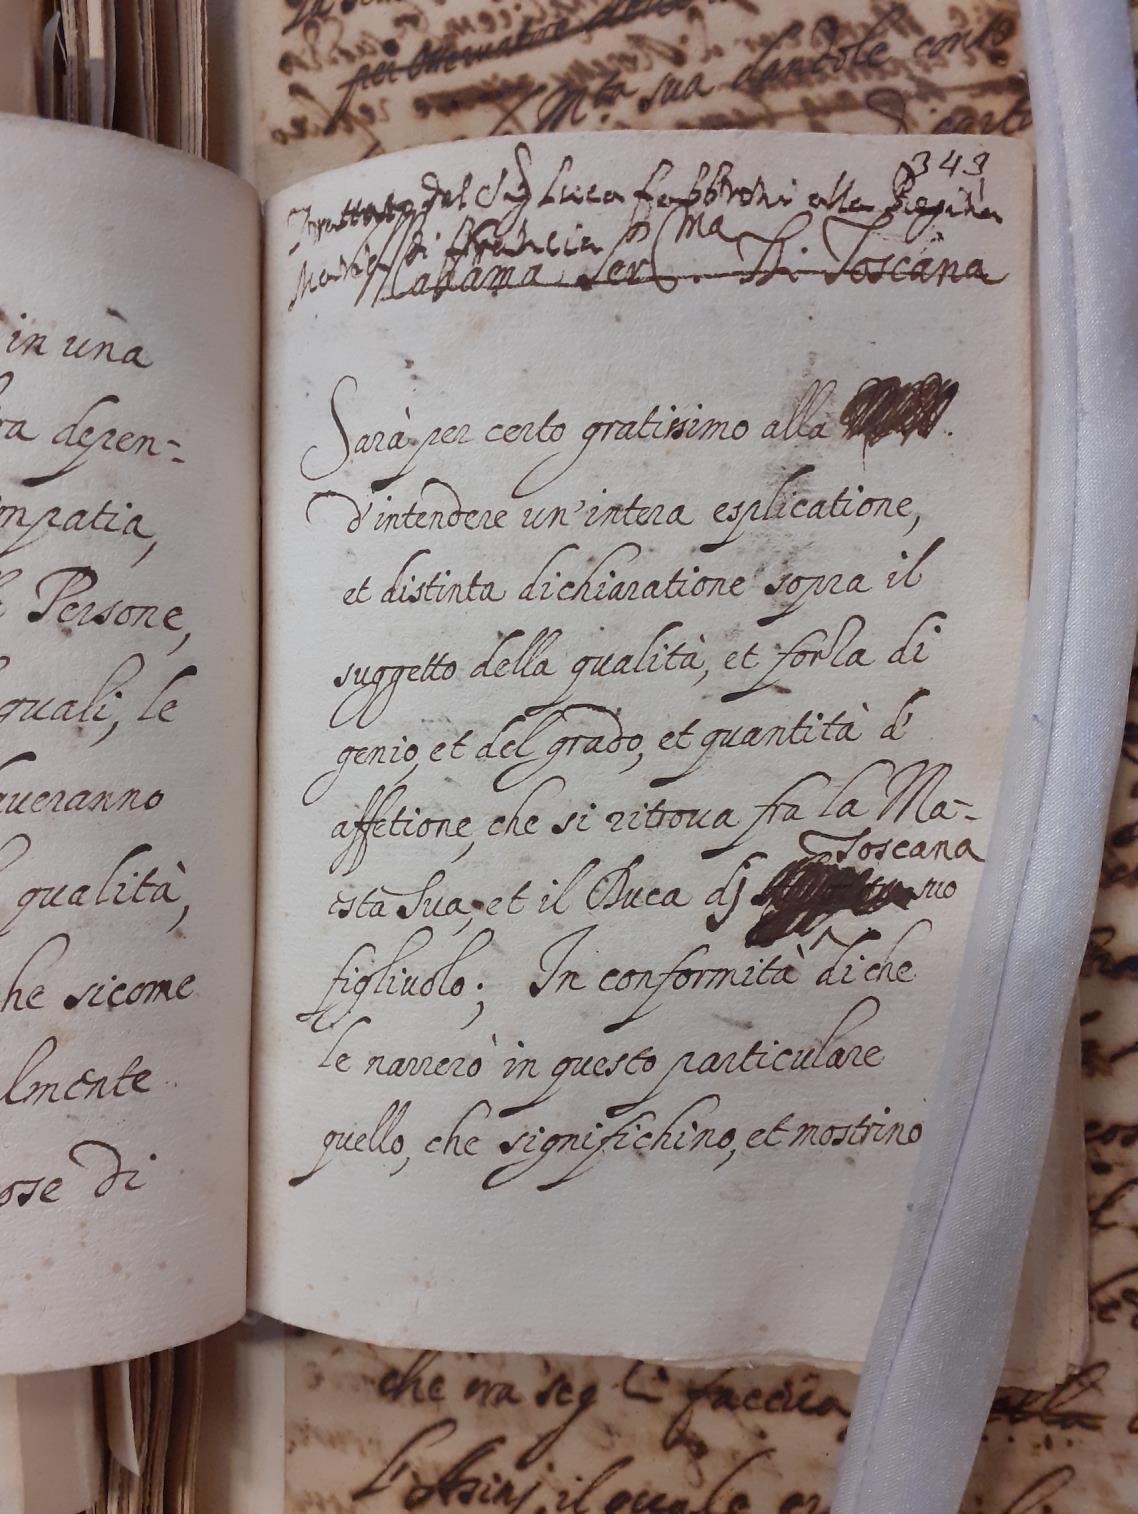 per
Mta sua dandole conto
in una
ra depen=
mpatia,
Persone,
quali, le
averanno
qualità,
he sicome
lmente
ose di
343
Trattato del Sig Luca fabbroni alla Regina
Maria di Francia
Madama Ser.ma Di Toscana
Sarà per certo gratissimo alla
d'intendere un'intera esplicatione,
et distinta dichiaratione sopra il
suggetto della qualità, et forza di
genio, et del grado, et quantità d'
affetione, che si ritrova fra la Ma-
Toscana
està Sua, et il Duca dj suo
figliuolo; In conformità di che
le narrerò in questo particulare
quello, che significhino, et mostrino
che ora seg li faccia
il quale